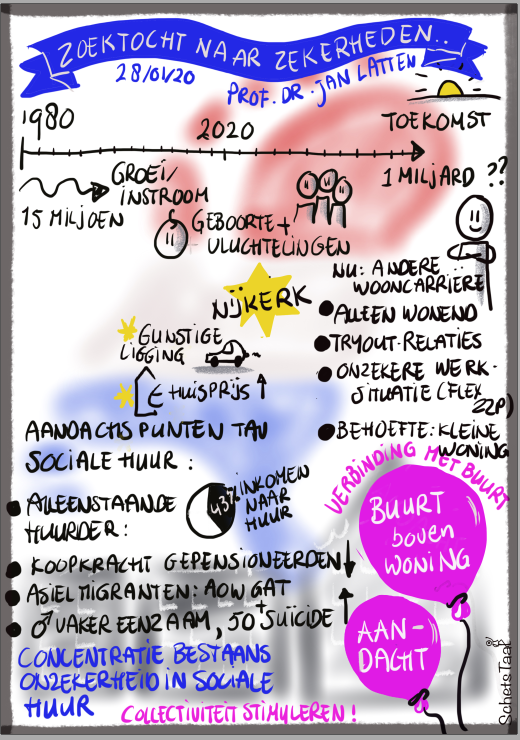 ZOEKTOCHT NAAR ZEKERHEDEN..
28/01/20
PROF. DR. JAN LATTEN
1980
2020
TOEKOMST
GROEI/
INSTROOM
1 MILJARD ??
15 MILJOEN
GEBOORTE+
VLUCHTELINGEN
NU: ANDERE
WOONCARRIÈRE
NIJKERK
ALLEEN WONEND
TRYOUT-RELATIES
ONZEKERE WERK-
SITUATIE (FLEX
ZZP)
GUNSTIGE
LIGGING
€ HUISPRIJS ↑
BEHOEFTE: KLEINE
WONING
AANDACHTSPUNTEN TAV
SOCIALE HUUR :
ALLEENSTAANDE
HUURDER:
43%
INKOMEN
NAAR
HUUR
VERBINDING MET BUURT
BUURT
boven
WONING
KOOPKRACHT GEPENSIONEERDEN ↓
ASIELMIGRANTEN: AOW GAT
♂ VAKER EENZAAM, 50+ SUÏCIDE ↑
AAN-
DACHT
CONCENTRATIE BESTAANS
ONZEKERHEID IN SOCIALE
HUUR
COLLECTIVITEIT STIMULEREN !
SchetsTaal